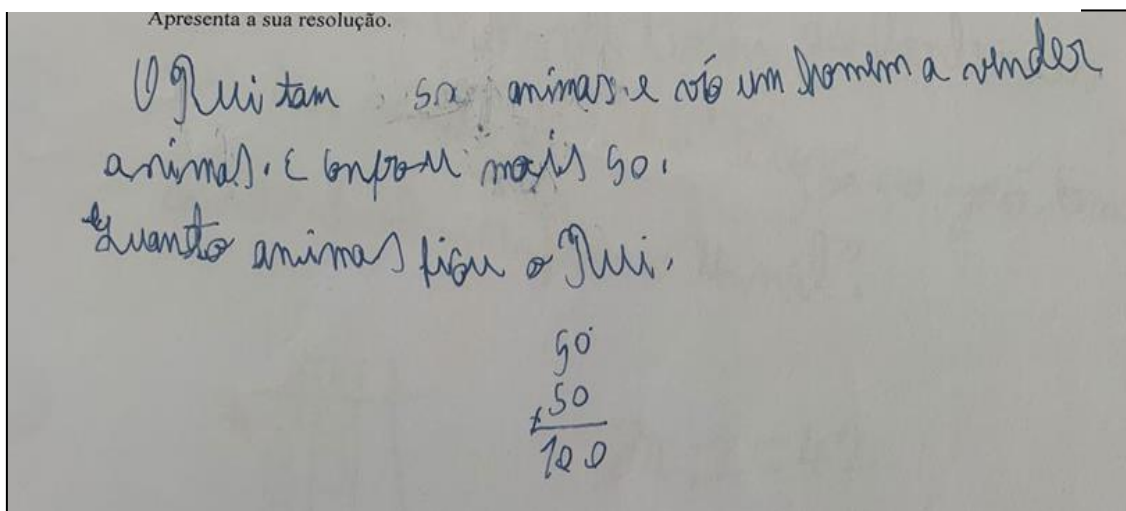 Apresenta a sua resolução.
O Rui tam 50 animas e vio um homem a vender
animas. E conpou mais 50.
Quanto animas ficu o Rui.
50
+50
100